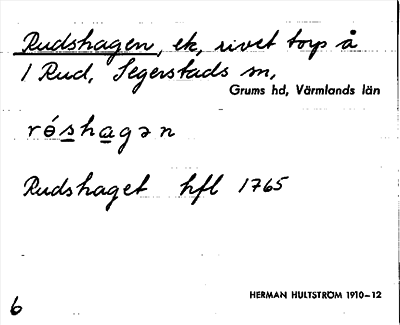 Rudshagen, ek, rivet torp å
1 Rud, Segerstads sn,
Grums hd, Värmlands län
róshagən
Rudshaget hfl 1765
HERMAN HULTSTRÖM 1910–12
6